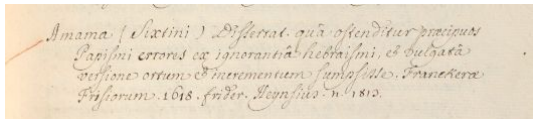 Amama (Sixtini) Dissertat. quâ ostenditur præcipuos
Papismi errores ex ignorantiâ hebraismi, et vulgatâ
versione ortum et incrementum sumsisse. Franekeræ
Frisiorum. 1618. frider. Heynsius. n. 1813.